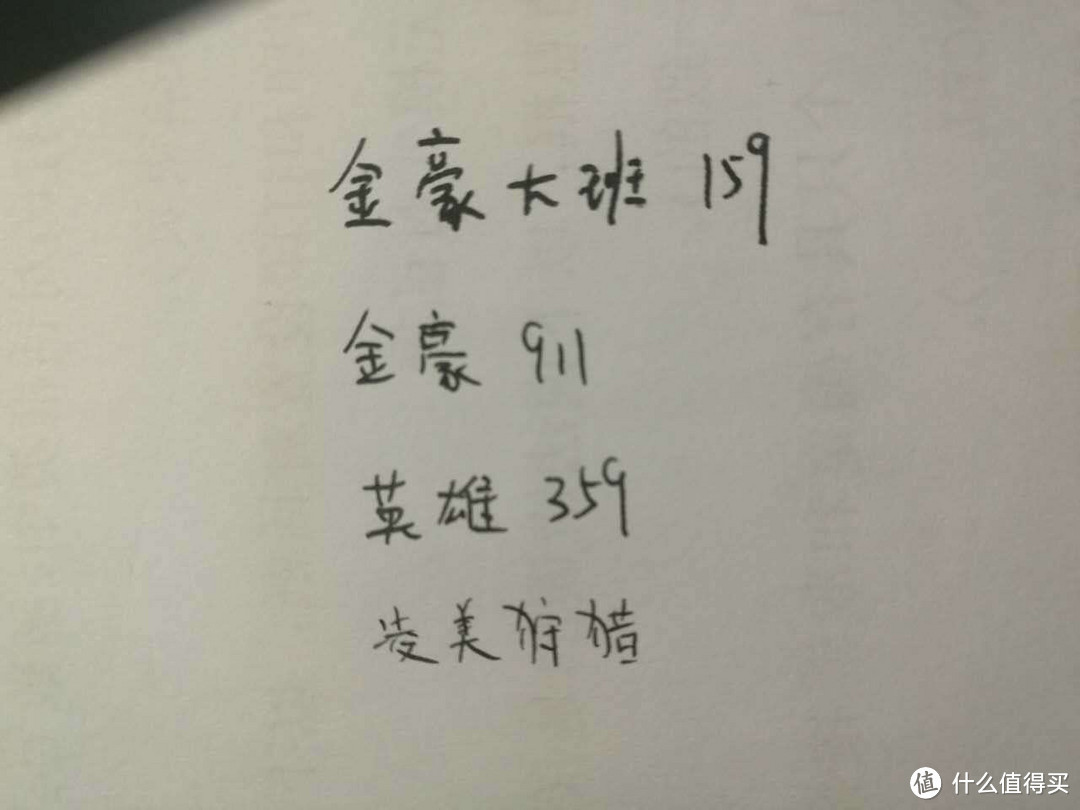 金豪大班 159
金豪 911
英雄 359
凌美狩猎
值 什么值得买